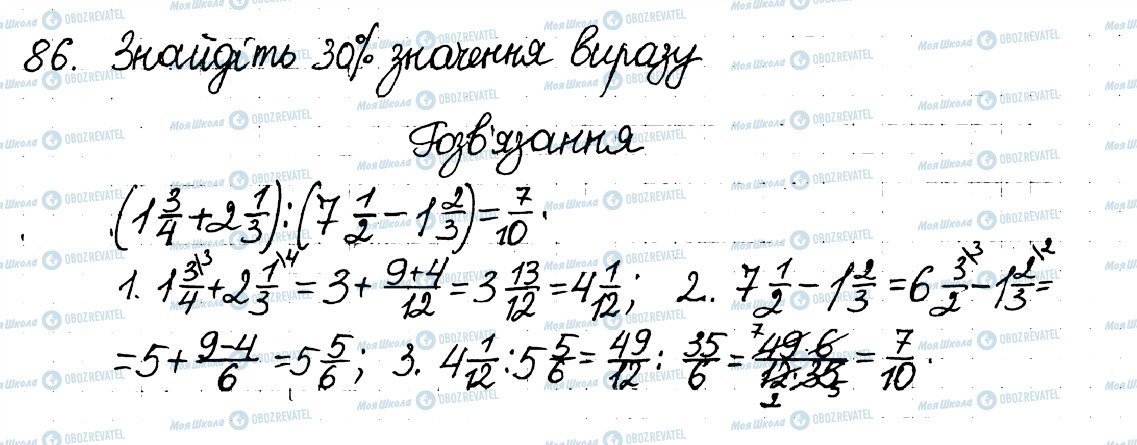 86. Знайдіть 30% значення виразу
Розв'язання
(1 3/4 + 2 1/3) : (7 1/2 − 1 2/3) = 7/10.
1. 1 3/4\3 + 2 1/3\4 = 3 + (9+4)/12 = 3 13/12 = 4 1/12; 2. 7 1/2 − 1 2/3 = 6 3/2\3 − 1 2/3\2 =
= 5 + (9−4)/6 = 5 5/6; 3. 4 1/12 : 5 5/6 = 49/12 : 35/6 = 7 49·6 / 12·35 2 5 = 7/10.